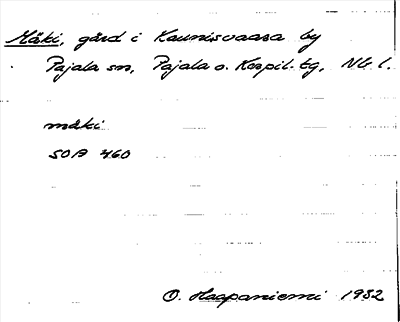 Mäki, gård i Kaunisvaara by
Pajala sn, Pajala o. Korpil. tg, Nb. l.
mäki
SOA 460
O. Haapaniemi 1932